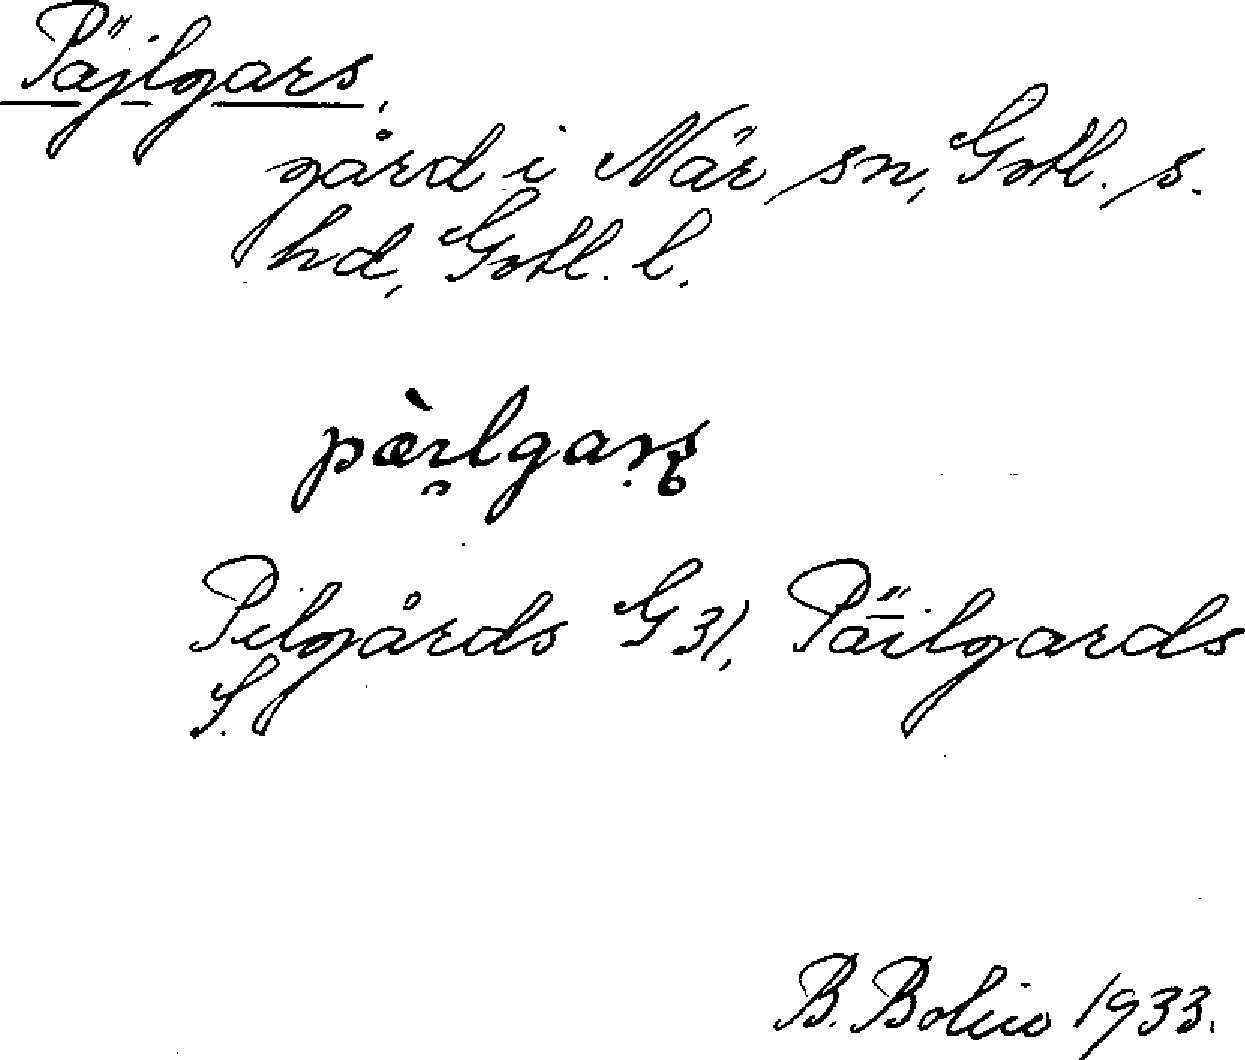 Päjlgars.
gård i När sn, Gotl. s.
hd, Gotl. l.
pæ̀ɪ̯lgaṛş
Pilgårds G 31, Päilgards
S.
B. Bolin 1933.